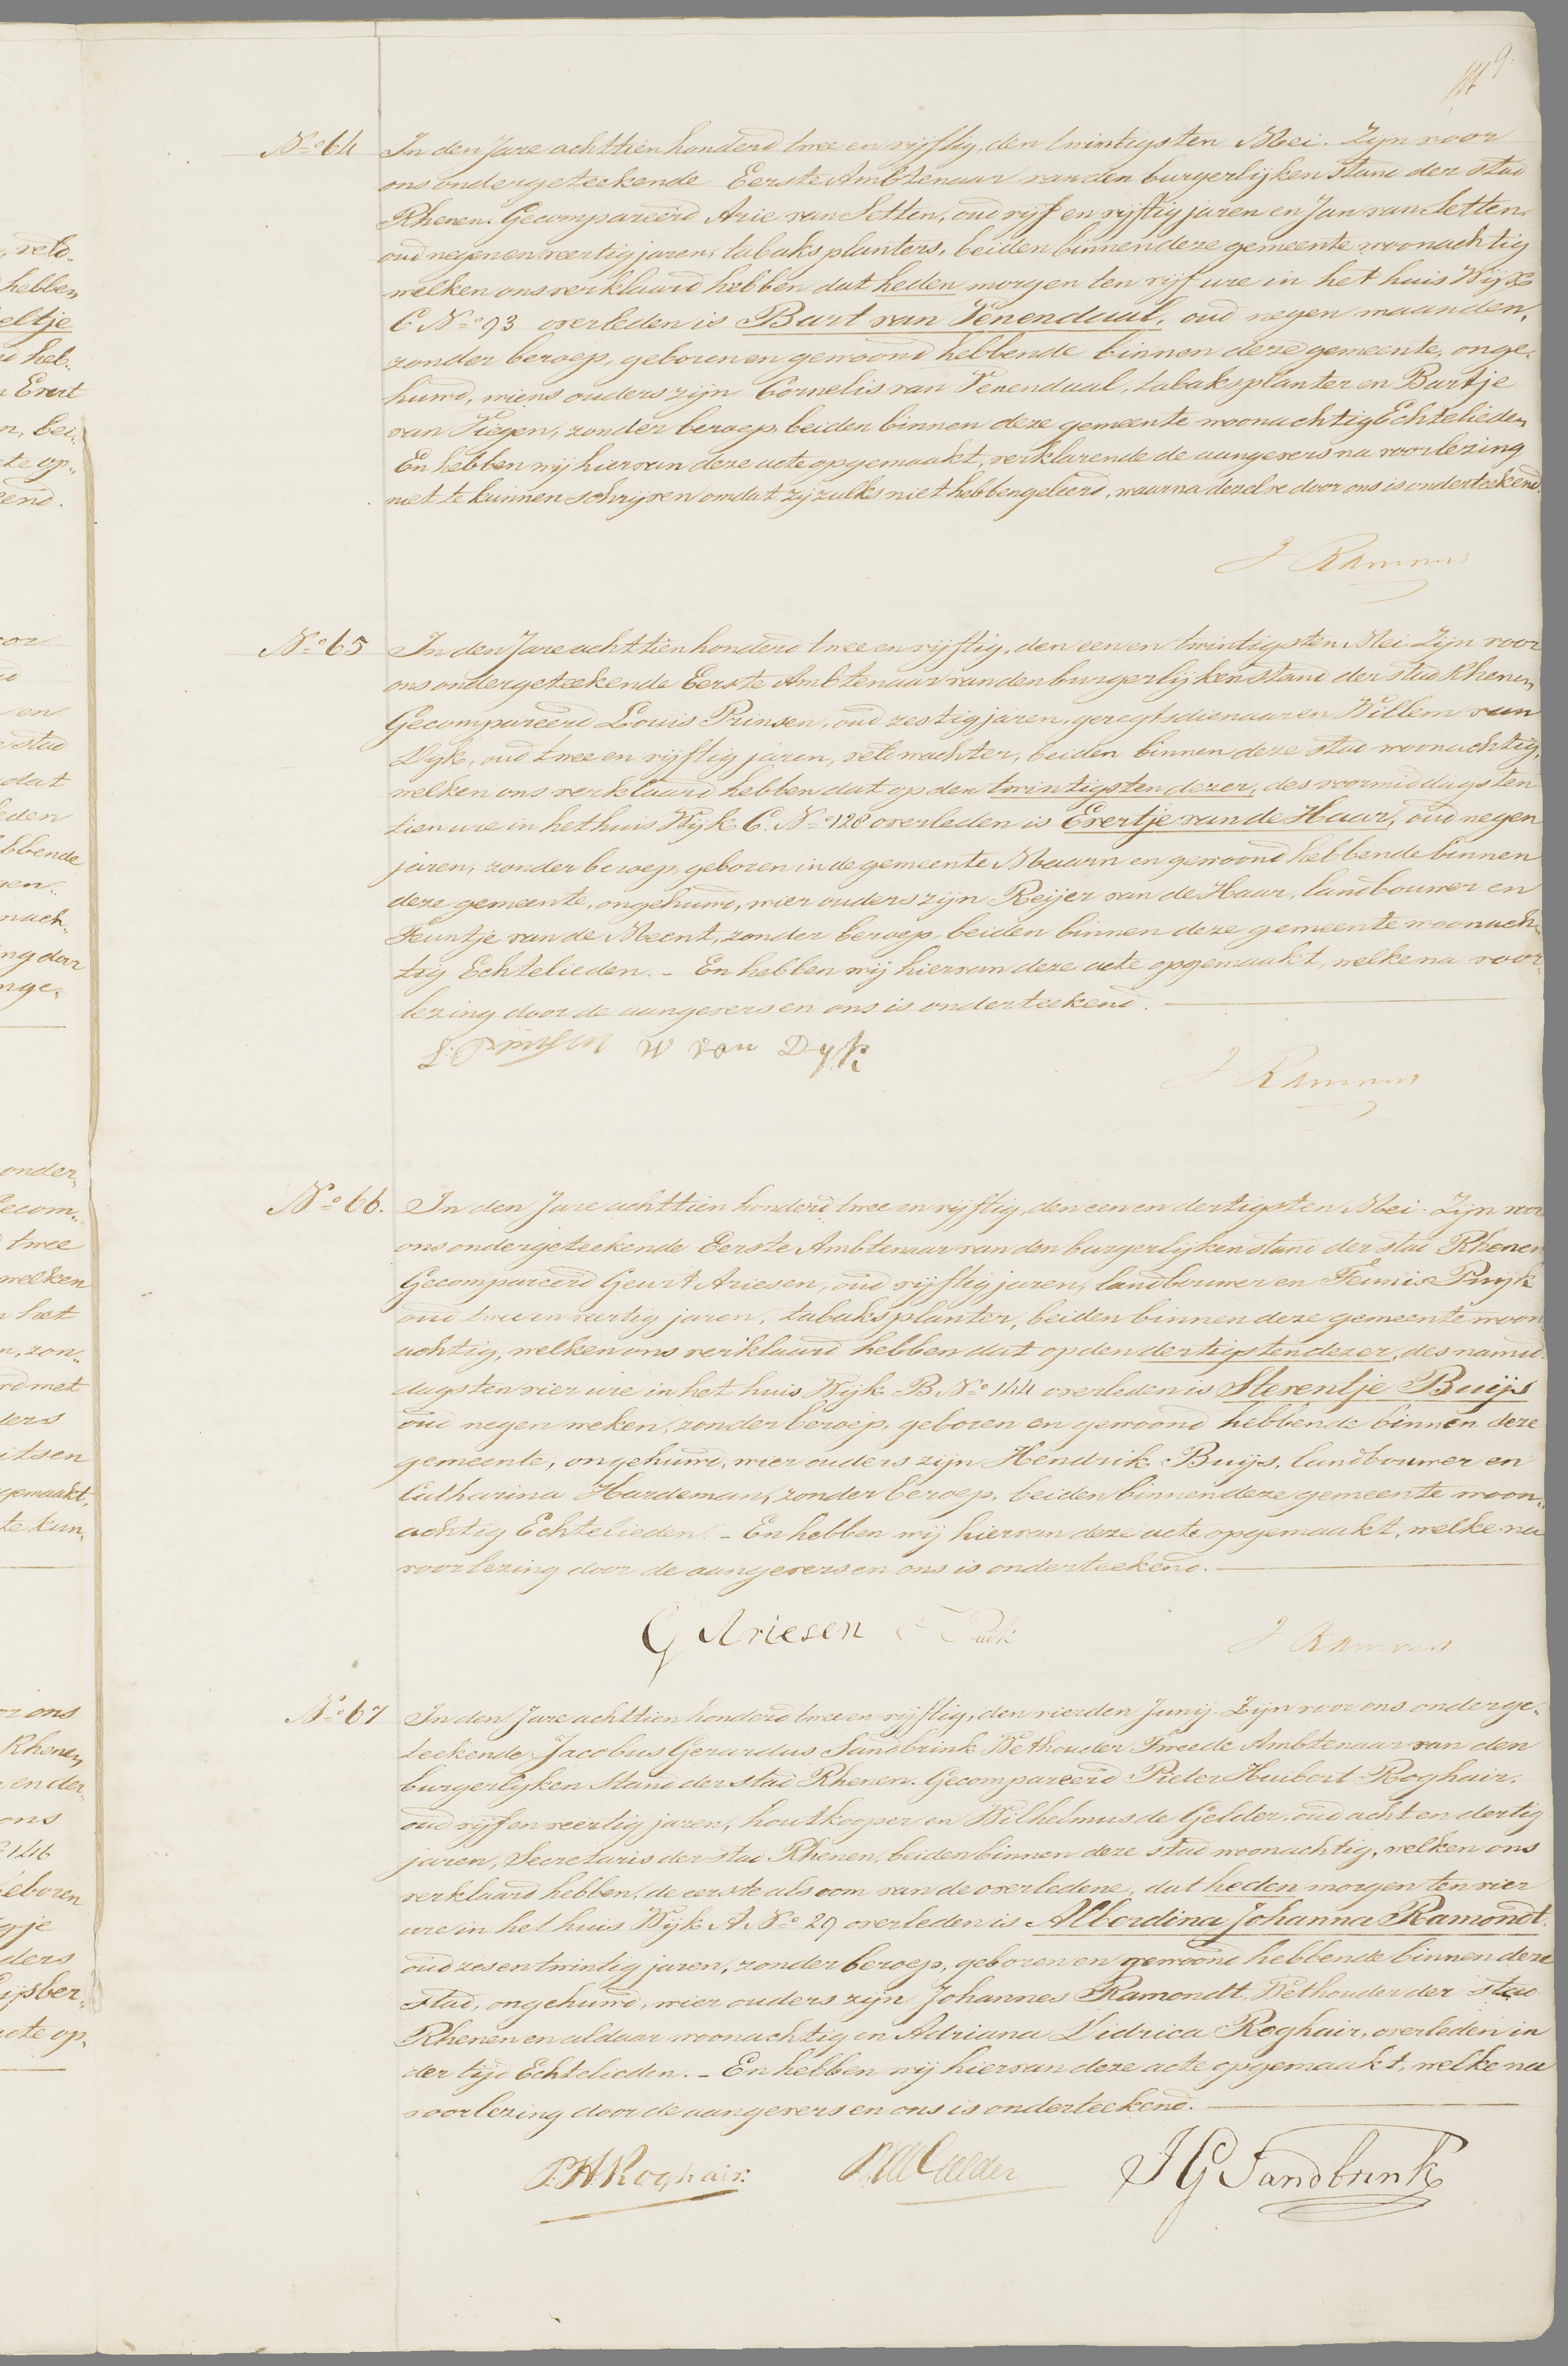 9
No 64 In den Jare achttien honderd twee en vijftig, den twintigsten Mei. Zijn voor
ons ondergeteekende Eerste Ambtenaar van den burgerlijken stand der stad
Rhenen. Gecompareerd Arie van Setten, oud vijf en vijftig jaren en Jan van Setten,
oud negen en veertig jaren, tabaksplanters, beiden binnen deze gemeente woonachtig
welken ons verklaard hebben dat heden morgen ten vijf ure in het huis Wijk
C No 93 overleden is Bart van Venendaal, oud negen maanden,
zonder beroep, geboren en gewoond hebbende binnen deze gemeente, onge„
huwd, wiens ouders zijn Cornelis van Venendaal, tabaksplanter en Bartje
van Viegen, zonder beroep, beiden binnen deze gemeente woonachtig Echtelieden
En hebben wij hiervan deze acte opgemaakt, verklarende de aangevers na voorlezing
niet te kunnen schrijven omdat zij zulks niet hebben geleerd, waarna dezelve door ons is onderteekend.
No 65 In den Jare achttien honderd twee en vijftig, den een en twintigsten Mei Zijn voor
ons ondergeteekende Eerste Ambtenaar van den burgerlijken stand der stad Rhenen,
Gecompareerd Louis Prinsen, oud zestig jaren, geregtsdienaar en Willem van
Dijk, oud twee en vijftig jaren, veldwachter, beiden binnen deze stad woonachtig,
welken ons verklaard hebben dat op den twintigsten dezer, des voormiddags ten
tien ure in het huis Wijk C. No 128 overleden is Evertje van de Haar, oud negen
jaren, zonder beroep, geboren in de gemeente Maarn en gewoond hebbende binnen
deze gemeente, ongehuwd, wier ouders zijn Reijer van de Haar, landbouwer en
Teuntje van de Meent, zonder beroep, beiden binnen deze gemeente woonach„
tig Echtelieden. - En hebben wij hiervan deze acte opgemaakt, welke na voor„
lezing door de aangevers en ons is onderteekend.
L. Prinsen W van Dyk
No 66. In den Jare achttien honderd twee en vijftig, den een en dertigsten Mei. Zijn voor
ons ondergeteekende Eerste Ambtenaar van den burgerlijken stand der stad Rhenen
Gecompareerd Geurt Ariesen, oud vijftig jaren, landbouwer en Teunis
oud twee en veertig jaren, tabaksplanter, beiden binnen deze gemeente woon„
achtig, welken ons verklaard hebben dat op den dertigsten dezer, des namid„
dags ten vier ure in het huis Wijk B No 144 overleden is Sterentje Buijs
oud negen weken, zonder beroep, geboren en gewoond hebbende binnen deze
gemeente, ongehuwd, wier ouders zijn Hendrik Buijs, landbouwer en
Catharina Hardeman, zonder beroep, beiden binnen deze gemeente woon„
achtig Echtelieden. - En hebben wij hiervan deze acte opgemaakt, welke na
voorlezing door de aangevers en ons is onderteekend.
G Ariesen
No 67 In den Jare achttien honderd twee en vijftig, den vierden Junij. Zijn voor ons onderge„
teekende Jacobus Gerardus Sandbrink Wethouder Tweede Ambtenaar van den
burgerlijken Stand der stad Rhenen. Gecompareerd Pieter Huibert Roghair,
oud vijf en veertig jaren, houtkooper en Wilhelmus de Gelder, oud acht en dertig
jaren, Secretaris der stad Rhenen, beiden binnen deze stad woonachtig, welken ons
verklaard hebben, de eerste als oom van de overledene, dat heden morgen ten vier
ure in het huis Wijk A No 29 overleden is Alberdina Johanna Ramondt
oud zes en twintig jaren, zonder beroep, geboren en gewoond hebbende binnen deze
stad, ongehuwd, wier ouders zijn Johannes Ramondt, Wethouder der stad
Rhenen en aldaar woonachtig en Adriana Didrica Roghair, overleden in
der tijd Echtelieden. - En hebben wij hiervan deze acte opgemaakt, welke na
voorlezing door de aangevers en ons is onderteekend.
P.H Roghair. J G Sandbrink